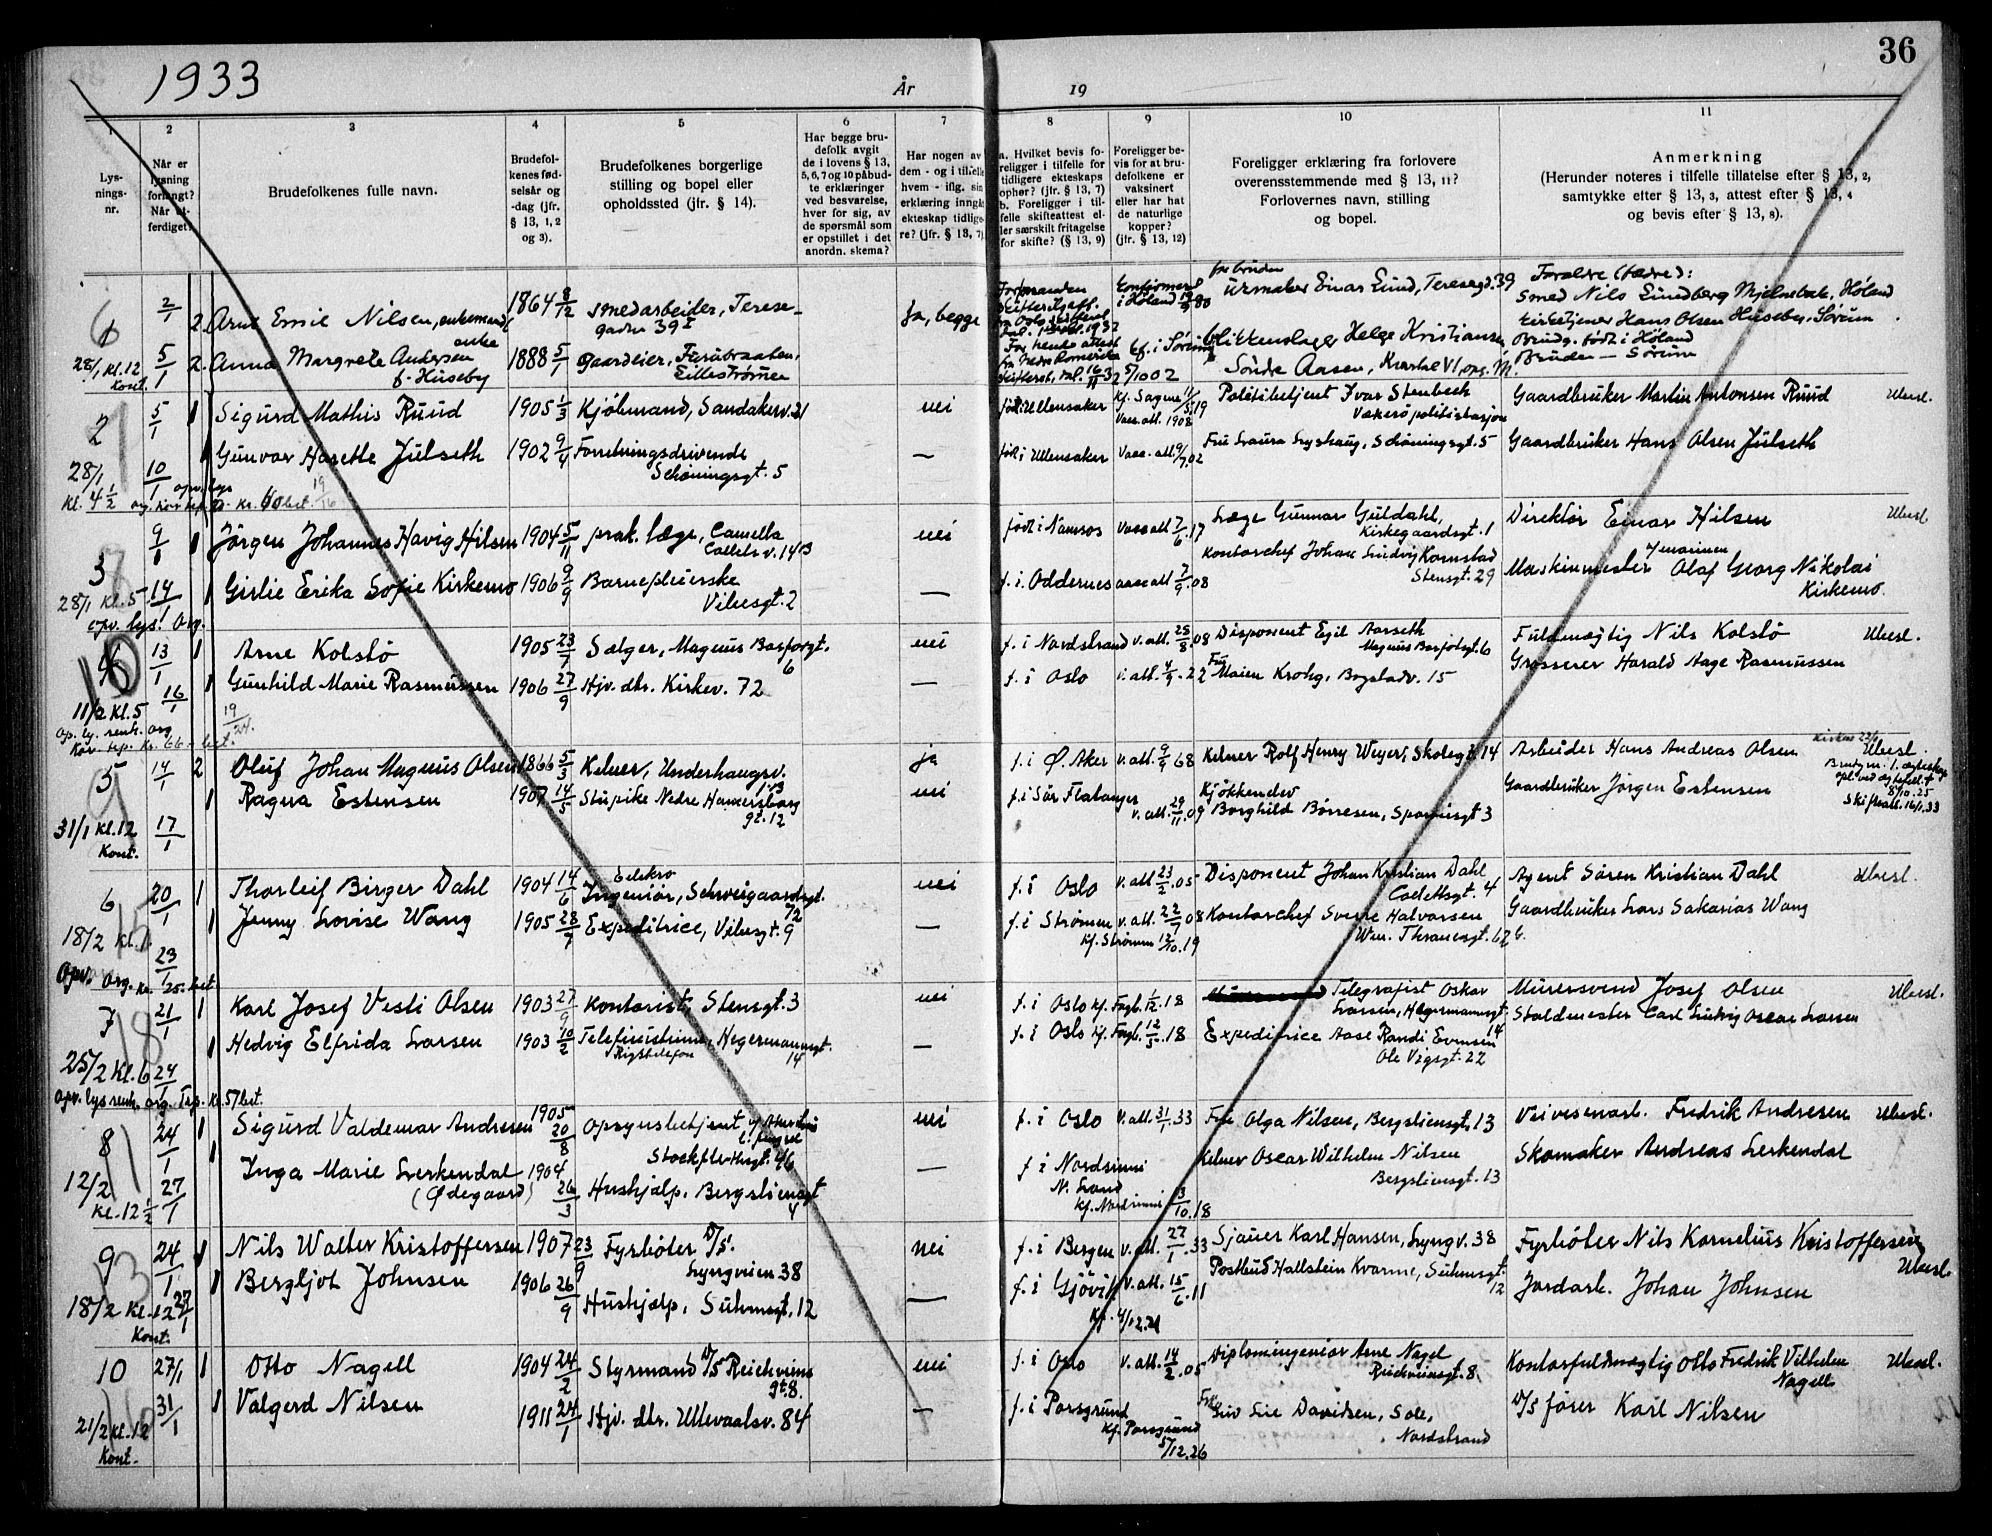 1933
År
19
36
1
2
3
4
5
6
7
8
9
10
11
Lysnings-
nr.
Når er
lysning
forlangt?
Når ut-
ferdiget?
Brudefolkenes fulle navn.
Brudefol-
kenes fød-
selsår og
-dag (jfr.
§ 13, 1, 2
og 3).
Brudefolkenes borgerlige
stilling og bopel eller
opholdssted (jfr. § 14).
Har begge bru-
defolk avgit
de i lovens § 13,
5, 6, 7 og 10 påbud-
te erklæringer
ved besvarelse,
hver for sig, av
de spørsmål som
er opstillet i det
anordn. skema?
Har nogen av
dem - og i tilfelle
hvem - iflg. sin
erklæring inngå
ekteskap tidlige-
re? (jfr. § 13, 7)
a. Hvilket bevis fo-
religger i tilfelle for
tidligere ekteskaps
ophør? (jfr. § 13, 7)
b. Foreligger i til-
felle skifteattest el-
ler særskilt fritagelse
for skifte? (§ 13, 9)
Foreligger be-
vis for at bru-
defolkene er
vaksinert
eller har hat
de naturlige
kopper?
(jfr. § 13, 12)
Foreligger erklæring fra forlovere
overensstemmende med § 13, 11?
Forlovernes navn, stilling
og bopel.
Anmerkning
(Herunder noteres i tilfelle tillatelse efter § 13, 2,
samtykke efter § 13, 3, attest efter § 13, 4
og bevis efter § 13, 8).
1 2/1 2. Arne Emil Nilsen, enkemand 1864 8/12 Smedarbeider, Terese-
gaden 39 I
Ja, begge
Konfirmert
i Høland
for bruden
Urmaker Einar Lund, Teresegt. 39
Forældre (fædre):
Smed Nils Lundberg Mjelnebak, Høland
Kirketjener Hans Olsen Huseby, Sørum
Brudg. født i Høland
Bruden — Sørum
28/1 kl. 12
Kont.
5/1 2. Anna Margrete Andersen enke
f. Huseby
1888 5/1 gaardeier, Furubraaten,
Lillestrømmen
kf. i Sørum
5/10 02
blikkenslager Helge Kristiansen
Søndre Aasen, Kvartal VI, opg. M.
2 5/1 1 Sigurd Mathis Ruud 1905 1/3 Kjøbmand, Sandakerv. 21 nei født i Ullensaker kf. Sagene 11/5 19
Vacc. att. 1908
Politibetjent Ivar Stenbeck
Vækerø politistasjon
Gaardbruker Martin Antonsen Ruud Ubesl.
1 Gunvor Harette Julseth 1902 9/4 Forretningsdrivende
Schøningsgt. 5
— født i Ullensaker Vacc. att. 9/7 02 Fru Laura Lyshaug, Schøningsgt. 5 Gaardbruker Hans Olsen Julseth
28/1
Kl. 4 1/2
10/1
3 9/1 1 Jørgen Johannes Havig Hilsen 1904 5/11 prak. læge, Camilla
Colletts v. 14 B
nei født i Namsos Vacc att 7/6 17 Læge Gunnar Guldahl,
Kirkegaardsgt. 1
Direktør Einar Hilsen Ubesl
28/1 Kl. 5 14/1 1 Girlie Erika Sofie Kirkemo 1906 9/9 Barnepleierske
Vibesgt. 2
— f. i Oddernes vacc att 7/9 08 Kontorchef Johan Ludvig Kornstad
Stensgt. 29
Maskinmester i marinen Olaf Georg Nikolai
Kirkemo.
opv. lys. Org.
4 13/1 1 Arne Kolstø 1905 23/7 Sælger, Magnus Barforgt.
6
nei f. i Nordstrand v. att. 25/8 08 Disponent Egil Aarseth
Magnus Barfotsgt. 6
Fuldmægtig Nils Kolstø Ubesl.
16/1 1 Gunhild Marie Rasmussen 1906 27/9 Hjv. dtr. Kirkev. 72 — f. i Oslo v. att. 4/9 22 Fru Maien Krohg, Bogstadv. 15 Grosserer Harald Aage Rasmussen
11/2 Kl. 5
5 14/1 2 Oluf Johan Magnus Olsen 1866 5/3 Kelner, Underhaugsv.
ja f. i Ø. Aker v. att. 9/9 68 Kelner Rolf Henry Weyer, Skolegt. 14 Arbeider Hans Andreas Olsen Ubesl.
1 Ragna Estensen 1907 14/5 Stupike Nedre Hammersborg
gt. 12
nei f. i Sør Flatanger v. att. 29/11 09 Kjøkkendev
Borghild Børresen, Sporveisgt 3
Gaardbruker Jørgen Estensen
Skifteatt. 16/1. 33
31/1 Kl. 12 17/1
Kont.
6 20/1 1 Thorleif Birger Dahl 1904 14/6 Elektro
Ingeniør, Schweigaardsgt.
72
nei f. i Oslo v. att 23/2 05 Disponent Johan Kristian Dahl
Collettsgt. 4
Agent Søren Kristian Dahl Ubesl.
1 Jenny Lovise Wang 1905 28/7 Expeditrice, Vibesgt. 9 — f. i Strømmen v. att. 22/7 08
kf. Strømm 12/10. 19
Kontorchef Sverre Halvorsen
Wm. Thranesgt. 67 b.
Gaardbruker Lars Sakarias Wang
18/2 Kl. 1. 23/1
Opv. Org. Kr. 25.- bet.
7 21/1 1 Karl Josef Vesti Olsen 1903 27/9 Kontorist, Stensgt. 3 nei f. i Oslo kf. Fagb. 1/12. 18 Telegrafist Oskar
Larsen, Hegermannsgt.
14
Murersvend Josef Olsen Ubesl.
1 Hedvig Elfrida Larsen 1903 10/2 Telefonistinne, Hegermannsgt.
Rigstelefon 14
— f. i Oslo kf. Fagb. 12/5. 18 Expeditrice Aase Randi Evensen
Ole Vigsgt. 22
Staldmester Carl Ludvig Oscar Larsen
25/2 Kl. 6 24/1
8 24/1 1 Sigurd Valdemar Andresen 1905 20/8 Opsynsbetjent
nei f. i Oslo v. att. 31/1 33 Fru Olga Nilsen, Bergsliensgt. 13 Veivesenarb. Fredrik Andresen Ubesl.
1 Inga Marie Lerkendal
(Ødegaard)
1904 26/3 Hushjelp, Bergsliensgt
— f i Nordsinni
N. Land
kf. Nordsinni 3/10. 18
Kelner Oscar Wilhelm Nilsen
Bergsliensgt. 13
Skomaker Andreas Lerkendal
12/2 27/1
Kl. 12 1/2
9 24/1 1 Nils Walter Kristoffersen 1907 23/9 Fyrbøter D/S.
Lyngveien 38
nei f. i Bergen v. att. 27/1. 33 Sjauer Karl Hansen, Lyngv. 38 Fyrbøter Nils Kornelius Kristoffersen
Ubesl.
1 Bergljot Johnsen 1906 26/9 Hushjelp, Suhmsgt. 12 — f. i Gjøvik v. att. 15/6. 11
Kf. 4/12. 21
Postbud Hallstein Kvarme, Suhmsgt.
12
Jordarb. Johan Johnsen
18/2 Kl. 12 27/1
Kont.
10 27/1 1 Otto Nagell 1904 24/2 Styrmand D/S Reichweins
gt. 8.
nei f. i Oslo v. att. 14/2 05 Diplomingeniør Arne Nagel
Reichweinsgt. 8.
Kontorfuldmægtig Otto Fredrik Vilhelm
Nagell
Ubesl.
31/1 1 Valgerd Nilsen 1911 24/1 Hjv. dtr. Ullevaalsv. 84 — f. i Porsgrund
kf. Porsgrund
5/12. 26
Davidsen, Sole,
Nordstrand
D/S fører Karl Nilsen
21/2 Kl. 12
Kont.